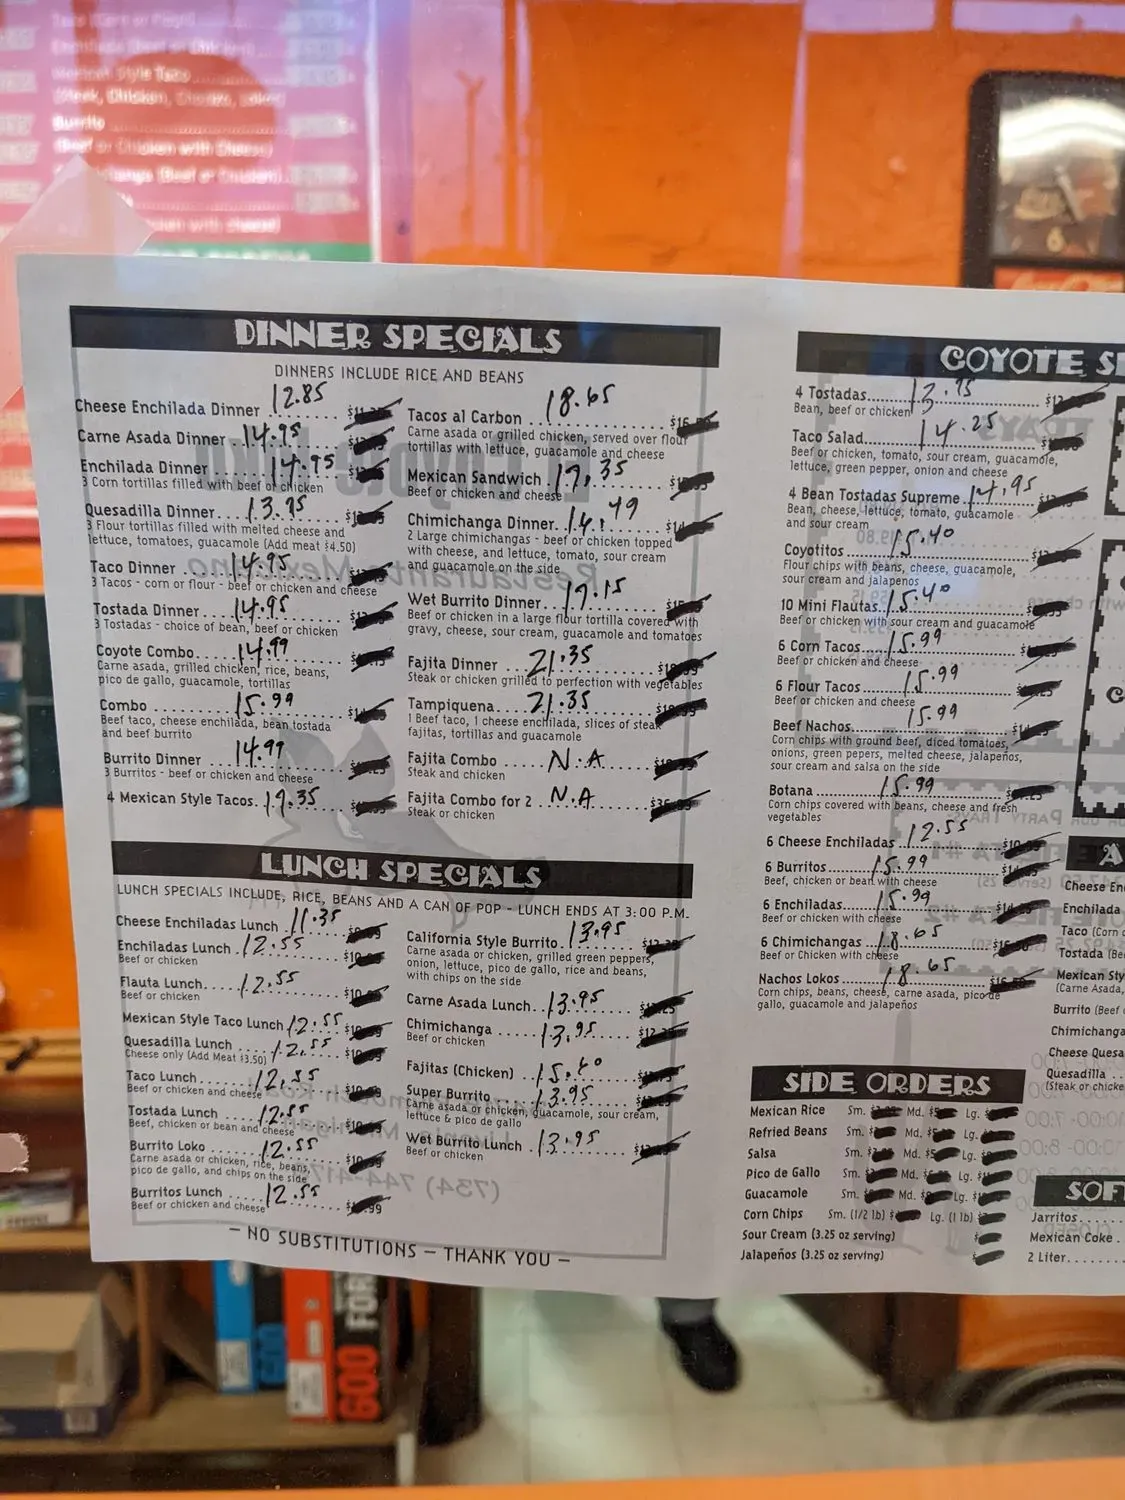 DINNER SPECIALS
DINNERS INCLUDE RICE AND BEANS
Cheese Enchilada Dinner 12.85
Carne Asada Dinner 14.95
Enchilada Dinner 14.95
3 Corn tortillas filled with beef or chicken
Quesadilla Dinner 13.95
3 Flour tortillas filled with melted cheese and
lettuce, tomatoes, guacamole (Add meat $4.50)
Taco Dinner 14.95
3 Tacos - corn or flour - beef or chicken and cheese
Tostada Dinner 14.95
3 Tostadas - choice of bean, beef or chicken
Coyote Combo 14.99
Carne asada, grilled chicken, rice, beans,
pico de gallo, guacamole, tortillas
Combo 15.99
Beef taco, cheese enchilada, bean tostada
and beef burrito
Burrito Dinner 14.99
3 Burritos - beef or chicken and cheese
4 Mexican Style Tacos 17.35
Tacos al Carbon 18.65
Carne asada or grilled chicken, served over flour
tortillas with lettuce, guacamole and cheese
Mexican Sandwich 17.35
Beef or chicken and cheese
Chimichanga Dinner 14.49
2 Large chimichangas - beef or chicken topped
with cheese, and lettuce, tomato, sour cream
and guacamole on the side
Wet Burrito Dinner 17.15
Beef or chicken in a large flour tortilla covered with
gravy, cheese, sour cream, guacamole and tomatoes
Fajita Dinner 21.35
Steak or chicken grilled to perfection with vegetables
Tampiquena 21.35
1 Beef taco, 1 cheese enchilada, slices of steak
fajitas, tortillas and guacamole
Fajita Combo N.A
Steak and chicken
Fajita Combo for 2 N.A
Steak or chicken
LUNCH SPECIALS
LUNCH SPECIALS INCLUDE, RICE, BEANS AND A CAN OF POP - LUNCH ENDS AT 3:00 P.M.
Cheese Enchiladas Lunch 11.35
Enchiladas Lunch 12.55
Beef or chicken
Flauta Lunch 12.55
Beef or chicken
Mexican Style Taco Lunch 12.55
Quesadilla Lunch 12.55
Cheese only (Add Meat $3.50)
Taco Lunch 12.55
Beef or chicken and cheese
Tostada Lunch 12.55
Beef, chicken or bean and cheese
Burrito Loko 12.55
Carne asada or chicken, rice, beans,
pico de gallo, and chips on the side
Burritos Lunch 12.55
Beef or chicken and cheese
California Style Burrito 13.95
Carne asada or chicken, grilled green peppers,
onion, lettuce, pico de gallo, rice and beans,
with chips on the side
Carne Asada Lunch 13.95
Chimichanga 13.95
Beef or chicken
Fajitas (Chicken) 15.60
Super Burrito 13.95
Carne asada or chicken, guacamole, sour cream,
lettuce & pico de gallo
Wet Burrito Lunch 13.95
Beef or chicken
– NO SUBSTITUTIONS – THANK YOU –
COYOTE
4 Tostadas 13.95
Bean, beef or chicken
Taco Salad 14.25
Beef or chicken, tomato, sour cream, guacamole,
lettuce, green pepper, onion and cheese
4 Bean Tostadas Supreme 14.95
Bean, cheese, lettuce, tomato, guacamole
and sour cream
Coyotitos 15.40
Flour chips with beans, cheese, guacamole,
sour cream and jalapenos
10 Mini Flautas 15.40
Beef or chicken with sour cream and guacamole
6 Corn Tacos 15.99
Beef or chicken and cheese
6 Flour Tacos 15.99
Beef or chicken and cheese
Beef Nachos 15.99
Corn chips with ground beef, diced tomatoes,
onions, green pepers, melted cheese, jalapeños,
sour cream and salsa on the side
Botana 15.99
Corn chips covered with beans, cheese and fresh
vegetables
6 Cheese Enchiladas 12.55
6 Burritos 15.99
Beef, chicken or bean with cheese
6 Enchiladas 15.99
Beef or chicken with cheese
6 Chimichangas 18.65
Beef or Chicken with cheese
Nachos Lokos 18.65
Corn chips, beans, cheese, carne asada, pico de
gallo, guacamole and jalapeños
SIDE ORDERS
Mexican Rice Sm. Md. Lg.
Refried Beans Sm. Md. Lg.
Salsa Sm. Md. Lg.
Pico de Gallo Sm. Md. Lg.
Guacamole Sm. Md. Lg.
Corn Chips Sm. (1/2 lb) Lg. (1 lb)
Sour Cream (3.25 oz serving)
Jalapeños (3.25 oz serving)
Cheese
Enchilada
Taco (Corn
Tostada
Mexican
(Carne Asada,
Burrito (Beef
Chimichanga
Cheese
Quesadilla
(Steak or
Jarritos
Mexican Coke
2 Liter